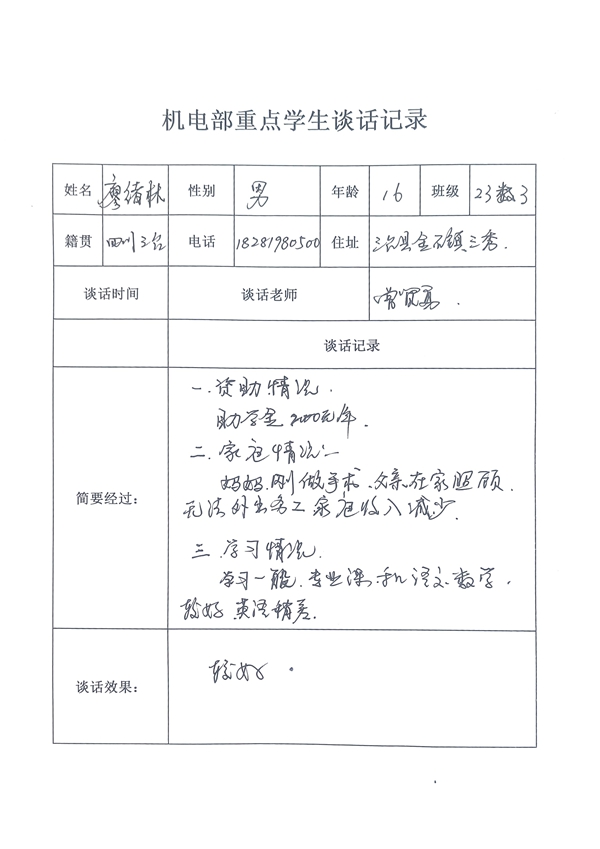 机电部重点学生谈话记录
姓名 廖绪林 性别 男 年龄 16 班级 23数3
籍贯 四川三台 电话 18281980500 住址 三台县金石镇三秀.
谈话时间 谈话老师 曾贤勇.
谈话记录
简要经过:
一.资助情况.
助学金2000元/年.
二.家庭情况:
妈妈刚做手术、父亲在家照顾.
无法外出务工家庭收入减少.
三.学习情况.
学习一般.专业课和语文.数学,
较好 英语稍差.
谈话效果: 较好.